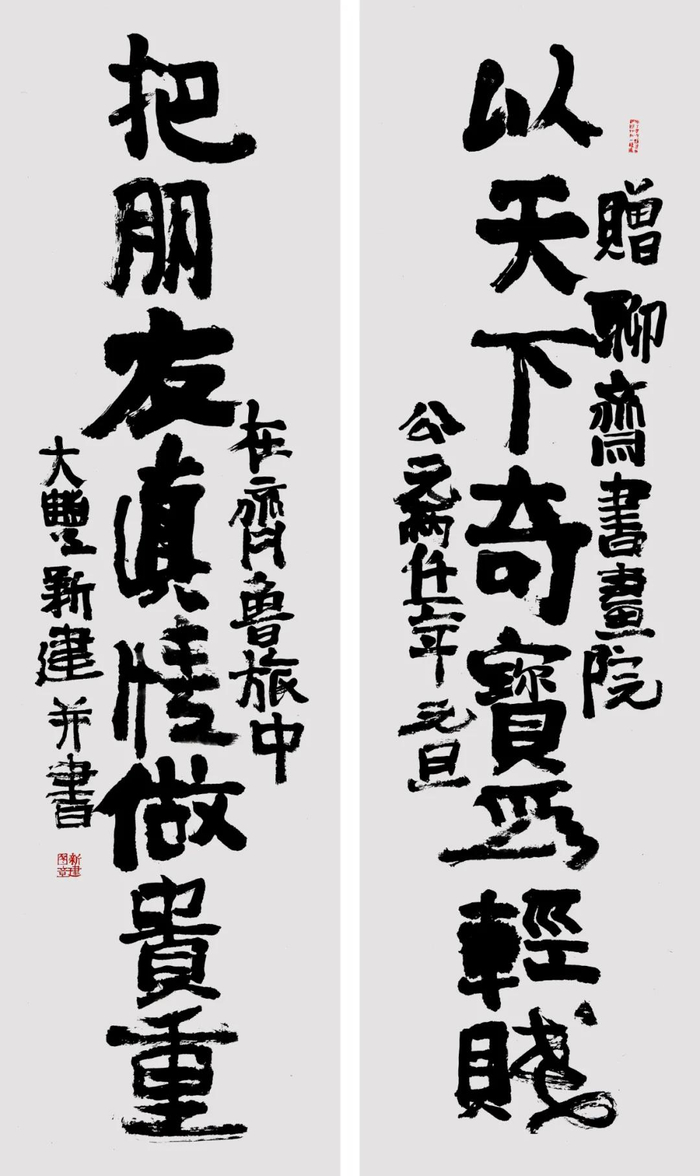 贈聊齋書畫院
以天下奇寶爲輕賤
公元兩仟六年元旦
在齊魯旅中
把朋友真情做貴重
大豐新建并書
新建圖章